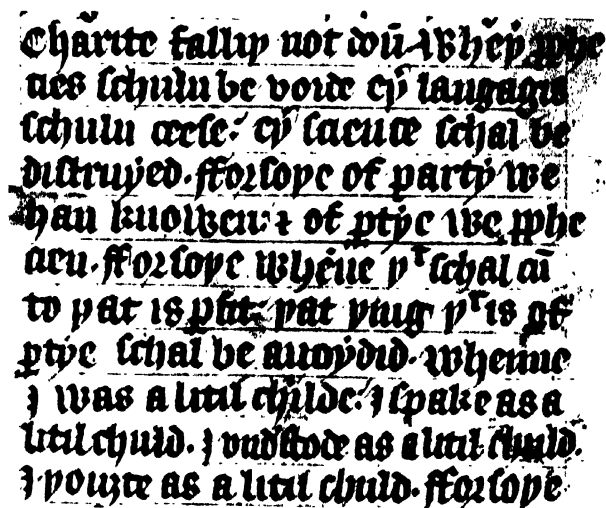 Charite falliþ not doū wheþ̄ ꝓphe
cies schuln be voide eþ̄ langagis
schuln ceese: eþ̄ science schal be
distruyed. fforsoþe of party we
han knowen: ⁊ of ꝑtye we ꝓphe
cien. fforsoþe whēne þᵗ schal cū
to þat is ꝑfit: þat þing þᵗ is of
ꝑtye schal be auoydid. whenne
I was a litil childe: I spake as a
litil chiild. I vndstode as a litil chiild.
I þouȝte as a litil chiild. fforsoþe